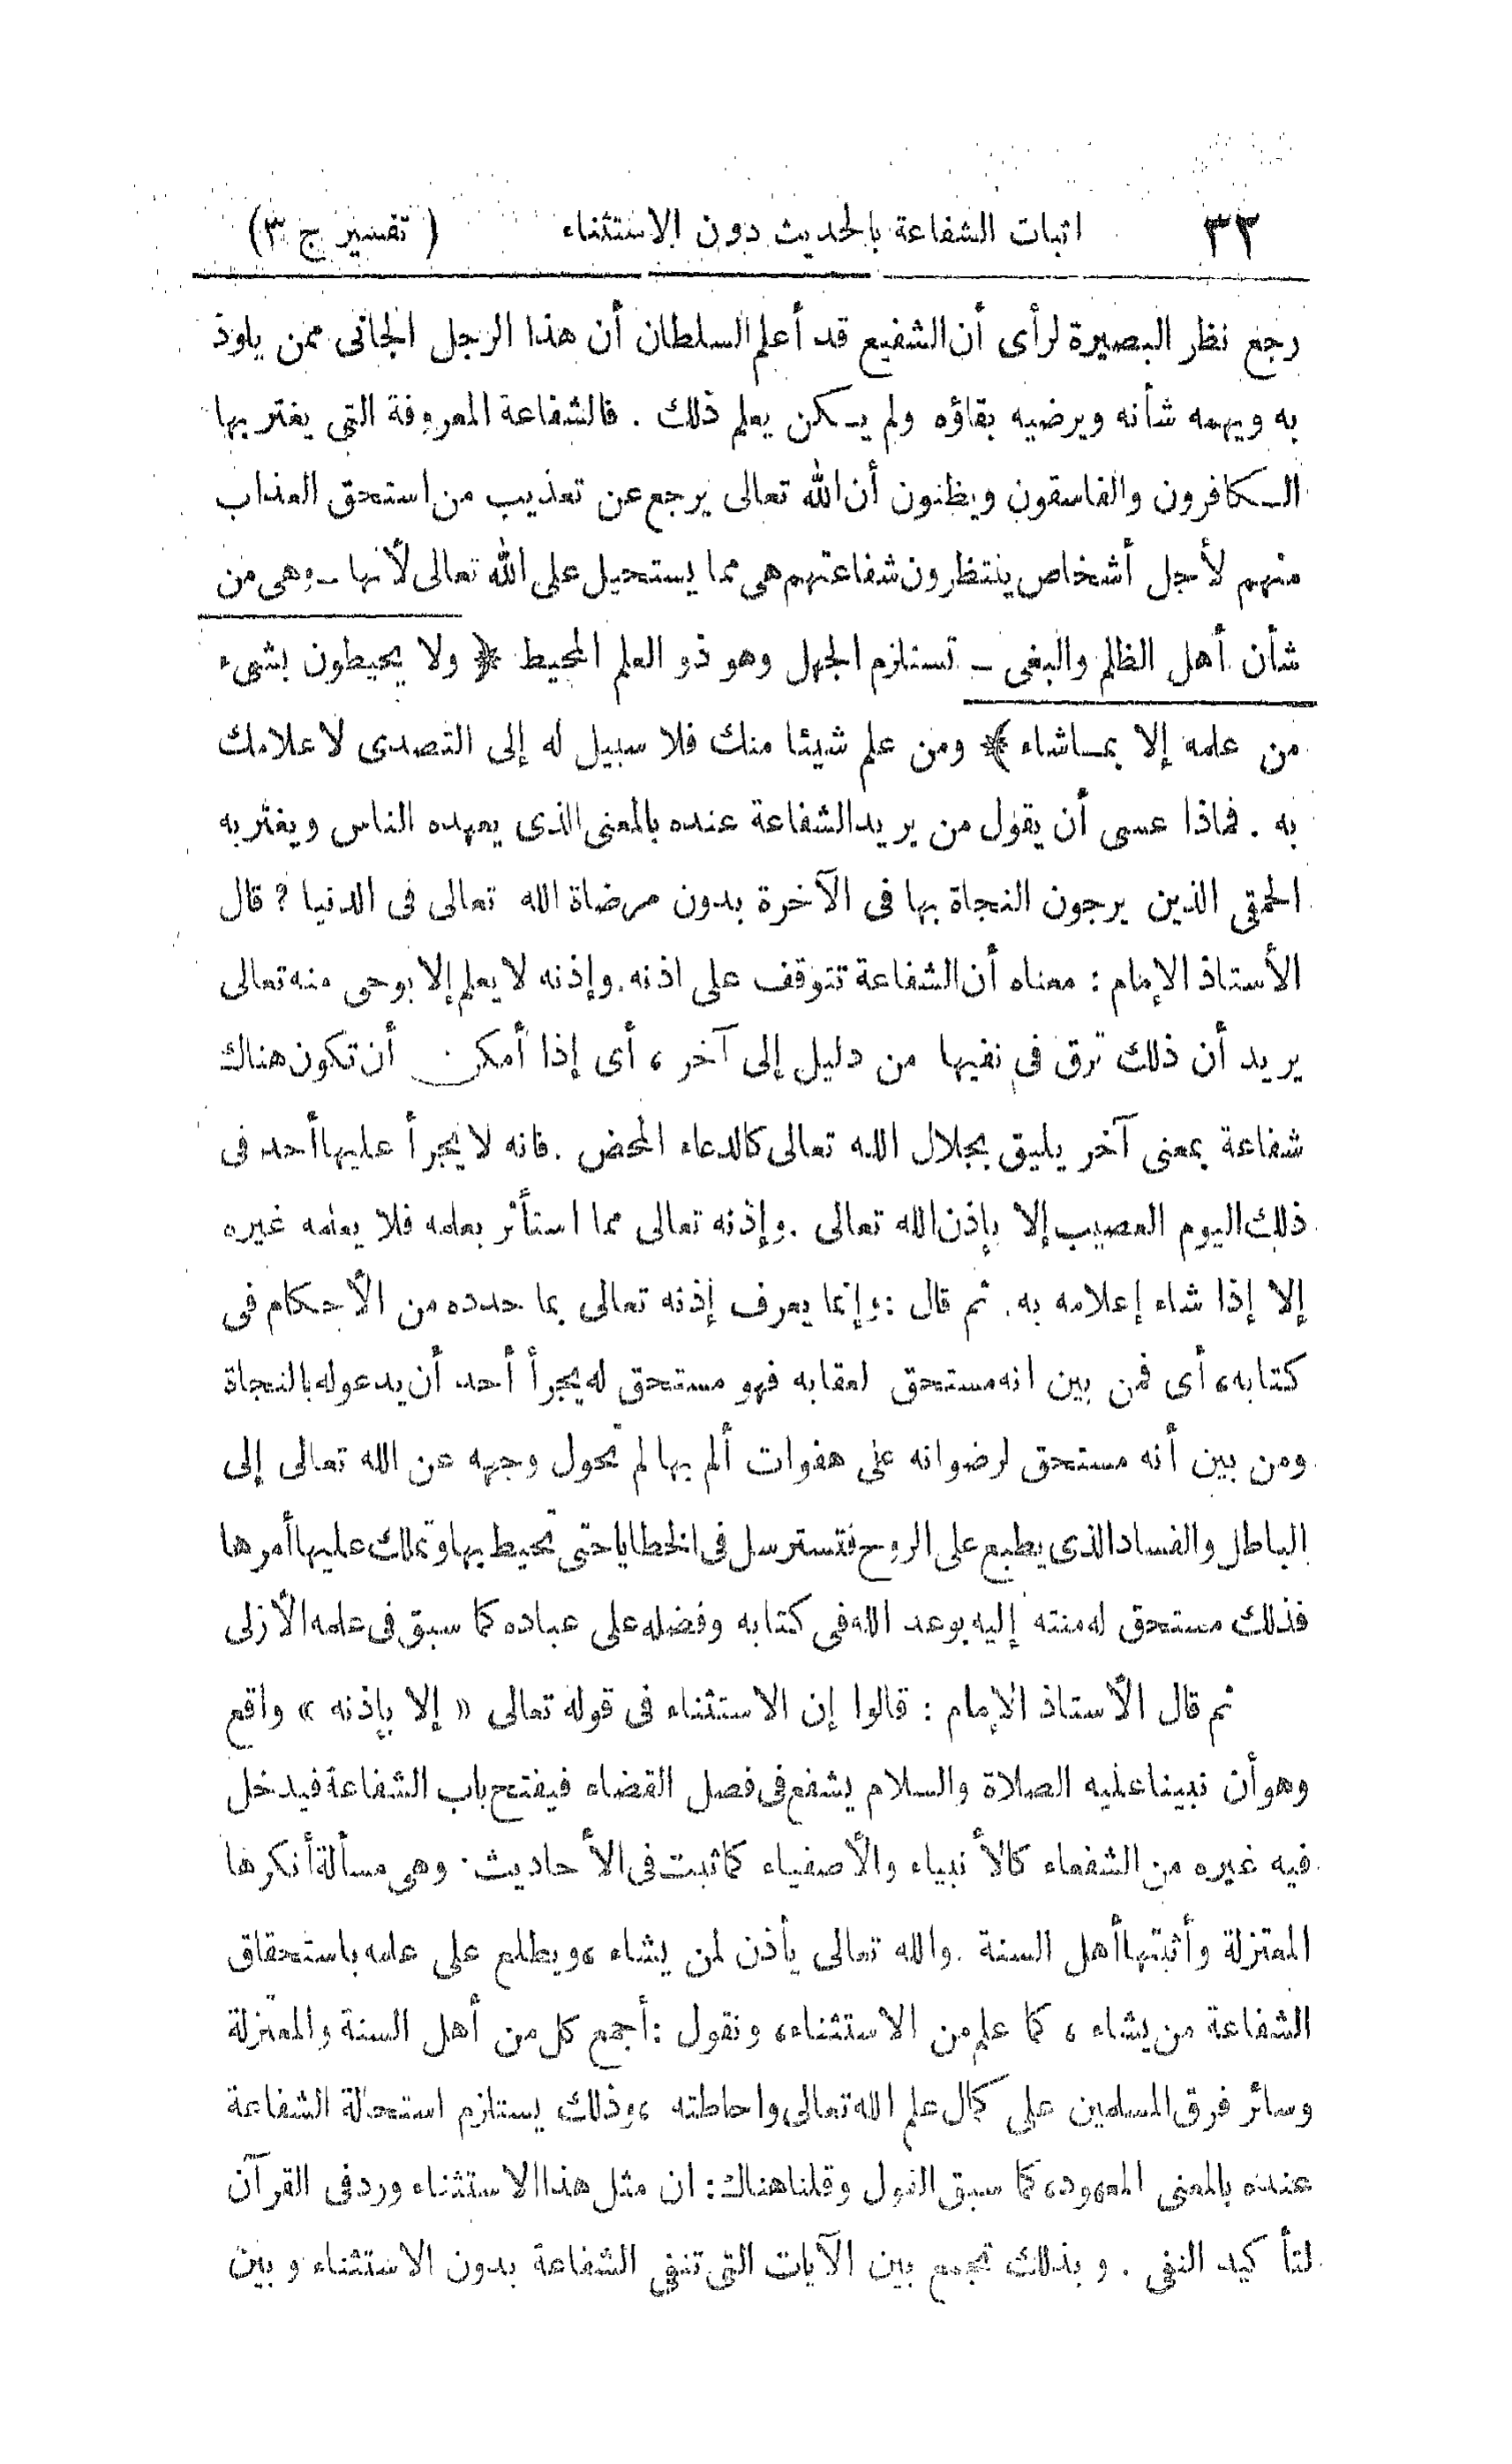 ٣٢ اثبات الشفاعة بالحديث دون الاستثناء ( تفسير ج ٣)
رجع نظر البصيرة لرأى أن الشفيع قد أعلم السلطان أن هذا الرجل الجانى ممن يلوذ
به ويهمه شأنه ويرضيه بقاؤه ولم يكن يعلم ذلك . فالشفاعة المعروفة التي يغتر بها
الكافرون والفاسقون ويظنون أن الله تعالى يرجع عن تعذيب من استحق العذاب
منهم لأجل أشخاص ينتظرون شفاعتهم هى مما يستحيل على الله تعالى لأنها ـ وهى من
شأن أهل الظلم والبغى ـ تستلزم الجهل وهو ذو العلم المحيط ﴿ ولا يحيطون بشىء
من علمه إلا بما شاء ﴾ ومن علم شيئا منك فلا سبيل له إلى التصدى لاعلامك
به . فماذا عسى أن يقول من يريد الشفاعة عنده بالمعنى الذى يعهده الناس ويغتر به
الحمقى الذين يرجون النجاة بها فى الآخرة بدون مرضاة الله تعالى فى الدنيا ? قال
الأستاذ الإمام : معناه أن الشفاعة تتوقف على اذنه. وإذنه لا يعلم إلا بوحى منه تعالى
يريد أن ذلك ترق فى نفيها من دليل إلى آخر ، أى إذا أمكن أن تكون هناك
شفاعة بمعنى آخر يليق بجلال الله تعالى كالدعاء المحض . فانه لا يجرأ عليها أحد فى
ذلك اليوم العصيب إلا بإذن الله تعالى . وإذنه تعالى مما استأثر بعلمه فلا يعلمه غيره
إلا إذا شاء إعلامه به. ثم قال : وإنما يعرف إذنه تعالى بما حدده من الأحكام فى
كتابه، أى فمن بين انه مستحق لعقابه فهو مستحق له يجرأ أحد أن يدعو له بالنجاة
ومن بين أنه مستحق لرضوانه على هفوات ألم بها لم تحول وجهه عن الله تعالى إلى
الباطل والفساد الذى يطبع على الروح فتسترسل فى الخطايا حتى تحيط بها وتملك عليها أمرها
فذلك مستحق له منته إليه بوعد الله فى كتابه وفضله على عباده كما سبق فى علمه الأزلى
ثم قال الأستاذ الإمام : قالوا إن الاستثناء فى قوله تعالى « إلا بإذنه » واقع
وهو أن نبينا عليه الصلاة والسلام يشفع فى فصل القضاء فيفتح باب الشفاعة فيدخل
فيه غيره من الشفعاء كالأنبياء والأصفياء كما ثبت فى الأحاديث . وهى مسألة أنكرها
المعتزلة وأثبتها أهل السنة . والله تعالى يأذن لمن يشاء ، ويطلع على علمه باستحقاق
الشفاعة من يشاء ، كما علم من الاستثناء، ونقول : أجمع كل من أهل السنة والمعتزلة
وسائر فرق المسلمين على كمال علم الله تعالى واحاطته ، وذلك يستلزم استحالة الشفاعة
عنده بالمعنى المعهود، كما سبق القول وقلنا هناك : ان مثل هذا الاستثناء ورد فى القرآن
لتأكيد النفى . وبذلك تجمع بين الآيات التى تنفى الشفاعة بدون الاستثناء وبين